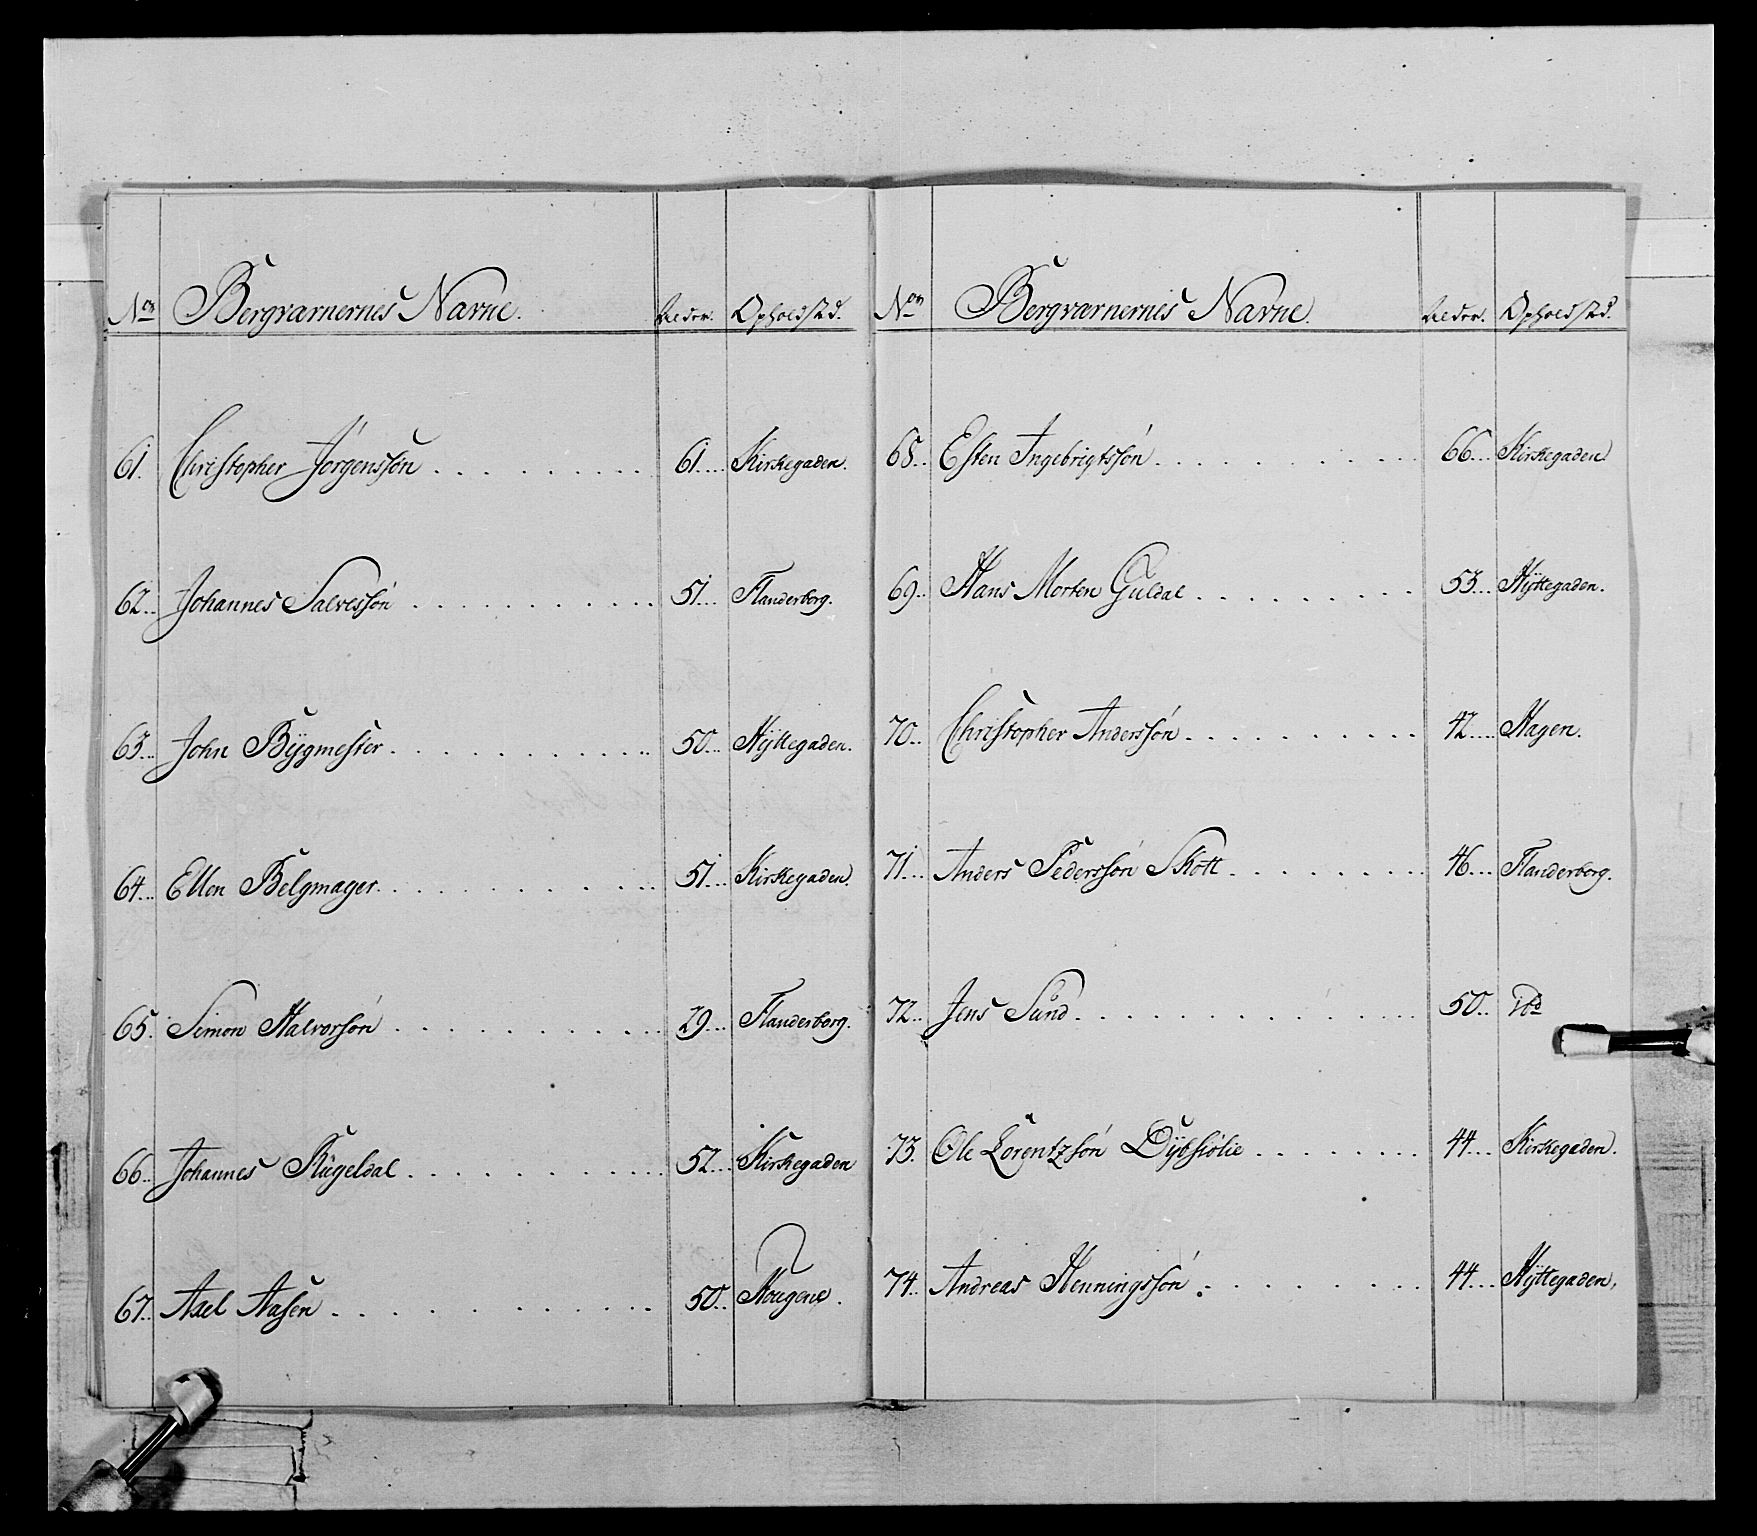 No Bergværnernes Navne. Alder. Opholdstd.
61. Christopher Jörgenssön 61 Kirkegaden.
62. Johannes Salvessön 51 Flanderborg.
63. John Bÿgmester 50 Hÿttegaden.
64. Ellen Belgmager 51 Kirkegaden.
65. Simon Halvorsön 29 Flanderborg.
66. Johannes Kugeldal 52 Kirkegaden
67. Axel Aasen 50 Hougene.
No Bergværnernes Navne. Alder. Opholdstd.
68. Esten Ingebrigtssön 66 Kirkegaden.
69. Hans Morten Guldal 53 Hÿttegaden.
70. Christopher Anderssön 42 Hagen.
71. Anders Pederssön Skott 46 Flanderborg.
72. Jens Sund 50
73. Ole Lorentzsön Dÿbsiölie 44 Kirkegaden.
74. Andreas Henningssön 44 Hÿttegaden.